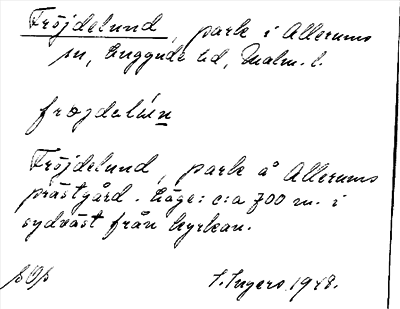 Fröjdelund, park i Allerums
sn, Luggude hd, Malm. l.
frøjdalún
Fröjdelund, park å Allerums
prästgård. Läge: c:a 700 m. i
sydväst från kyrkan.
S. Ingers 1948.